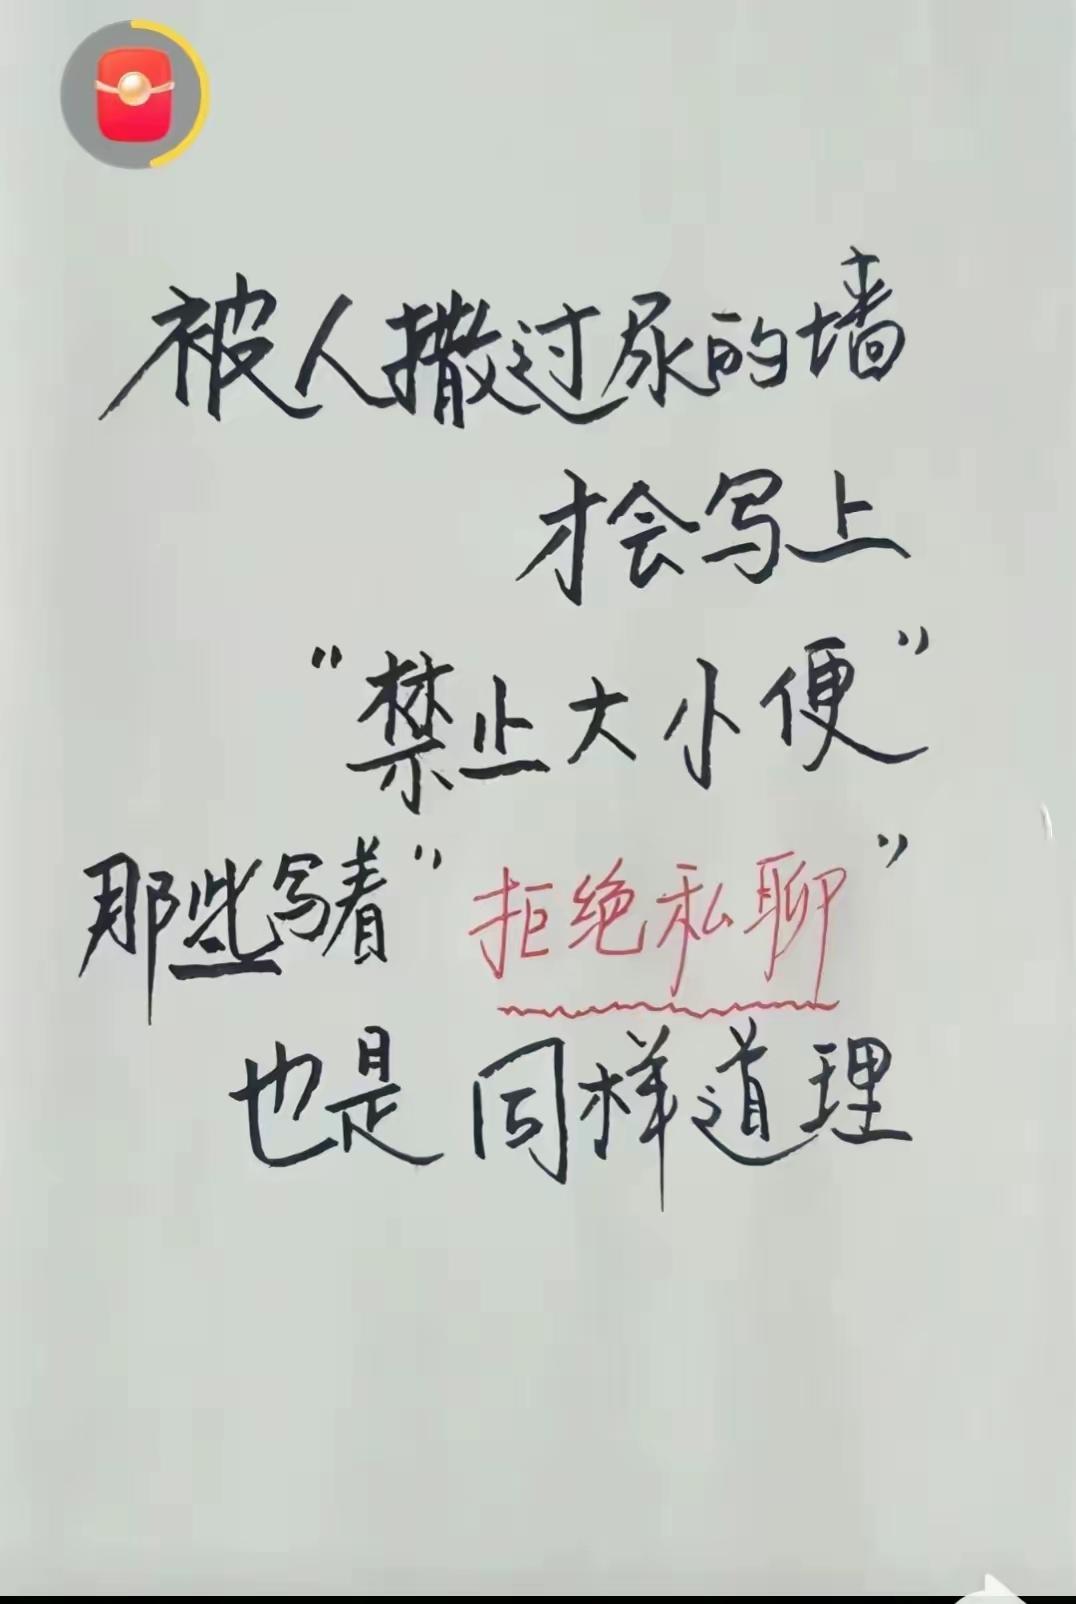 被人撒过尿的墙
才会写上
“禁止大小便”
那些写着“拒绝私聊”
也是同样道理